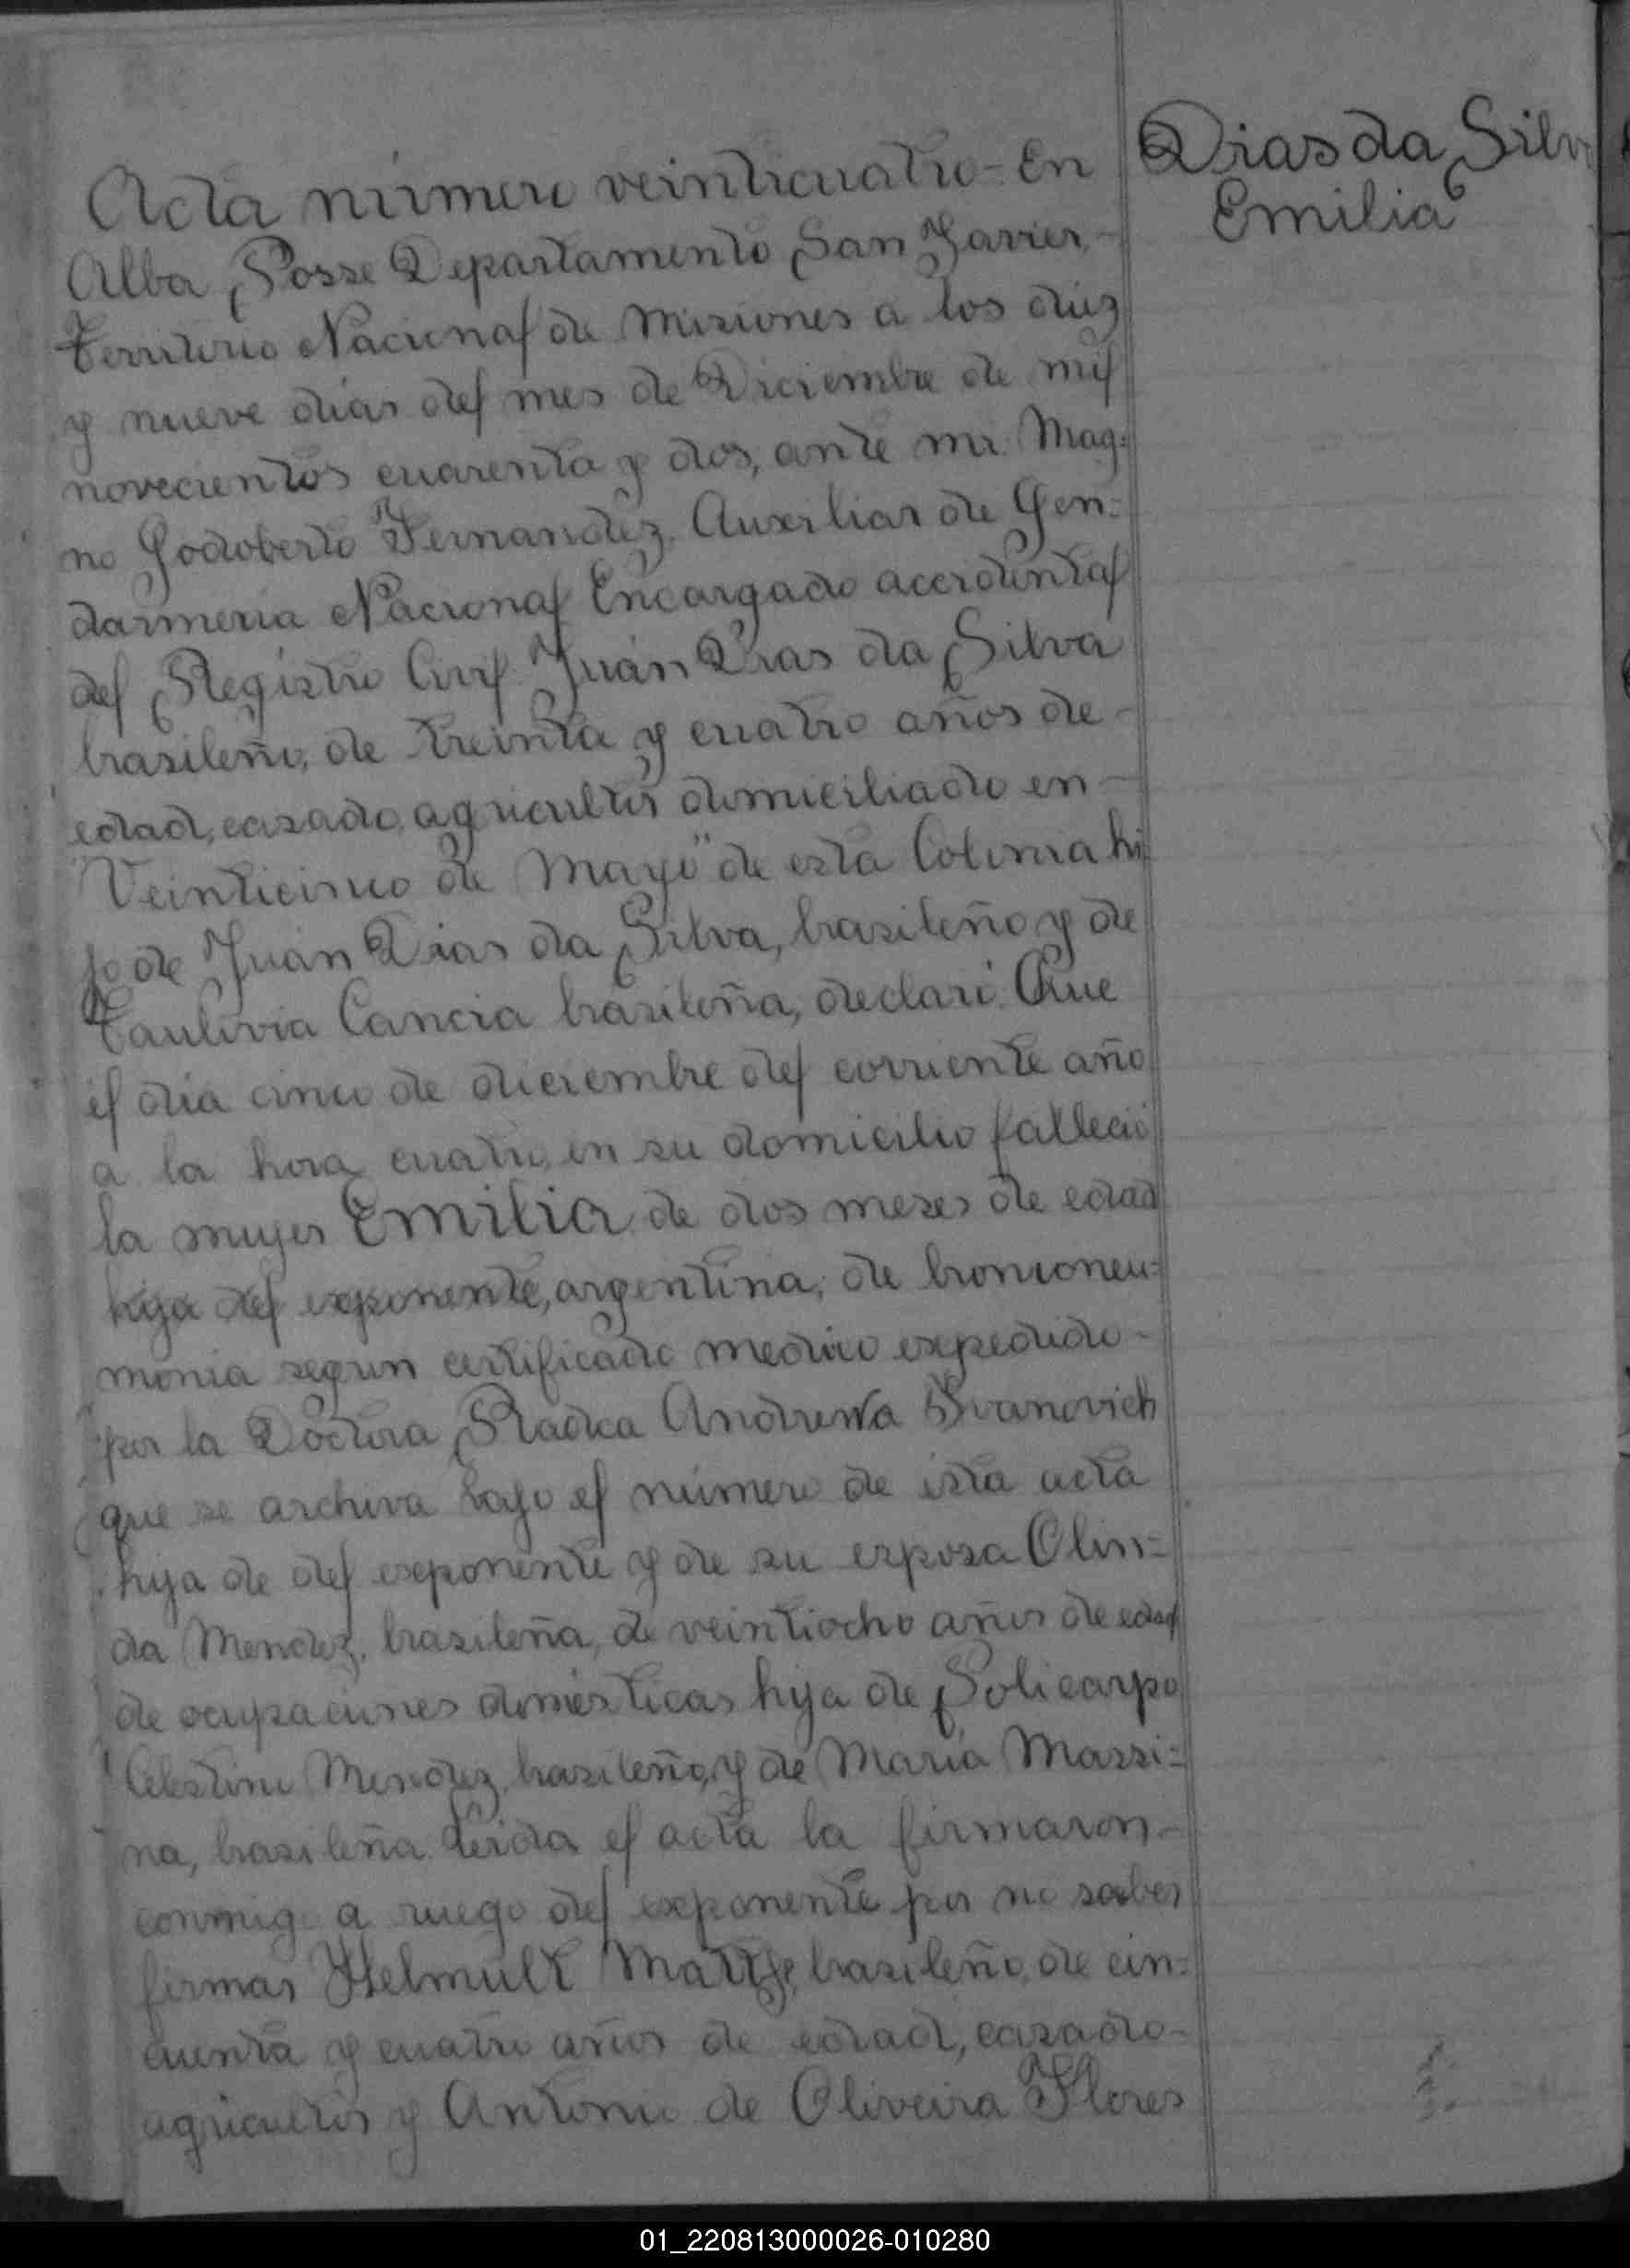 Acta número veinticuatro = En
Alba Posse Departamento San Javier, -
Territorio Nacional de Misiones a los diez
y nueve días del mes de Diciembre de mil
novecientos cuarenta y dos, ante mi: Mag=
no Godoberto Fernandez. Auxiliar de Gen=
darmería Nacional Encargado accidental
del Registro Civil. Juán Dias da Silva
brasileño, de treinta y cuatro años de -
edad, casado, agricultor domiciliado en -
"Veinticinco de Mayo" de esta Colonia hi
jo de Juán Dias da Silva, brasileño y de
Taulivia Cancia brasileña, declaró: Que
el día cinco de diciembre del corriente año
a la hora cuatro, en su domicilio falleció
la mujer Emilia de dos meses de edad
hija del exponente, argentina, de bronconeu=
monia segun certificado medico expedido -
por la Doctora Radka Andrewa Ivanovich
que se archiva bajo el número de ésta acta
hija de del exponente y de su esposa Olin=
da Mendez, brasileña, de veintiocho años de edad
de ocupaciones domésticas hija de Policarpo
Celestino Mendez, brasileño, y de María Massi=
na, brasileña. Leída el acta la firmaron -
conmigo a ruego del exponente por no saber
firmar Helmult brasileño, de cin=
cuenta y cuatro años de edad, casado -
agricultor y Antonio de Oliveira Flores
Dias da Silv
Emilia
01_220813000026-010280